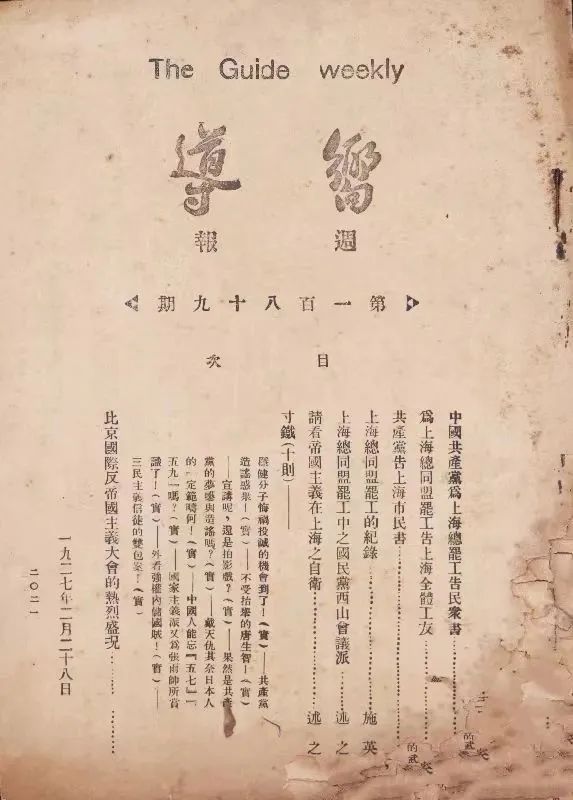 The Guide weekly
嚮導
週報
第一百八十九期
目次
中國共產黨爲上海總罷工告民衆書
爲上海總同盟罷工告上海全體工友
共產黨告上海市民書
上海總同盟罷工的紀錄………………施英
上海總同盟罷工中之國民黨西山會議派………述之
請看帝國主義在上海之自衛………………述之
寸鐵(十則)——
健分子悔禍投誠的機會到了!(實)——共產黨
造謠惑!(實)——不受抬舉的唐生智!(實)
——宣講呢,還是拍影戲?(實)——果然是共產
黨的夢囈與造謠嗎?(實)——戴天仇其奈日本人
的一定範疇何!(實)——中國人能忘『五七』『
五九』嗎?(實)——國家主義派又爲張雨帥所賞
識了!(實)——外看強權內儲國賊!(實)——
三民主義信徒的雙包案!(實)
比京國際反帝國主義大會的熱烈盛況………
一九二七年二月二十八日
二〇二一
的武
的武